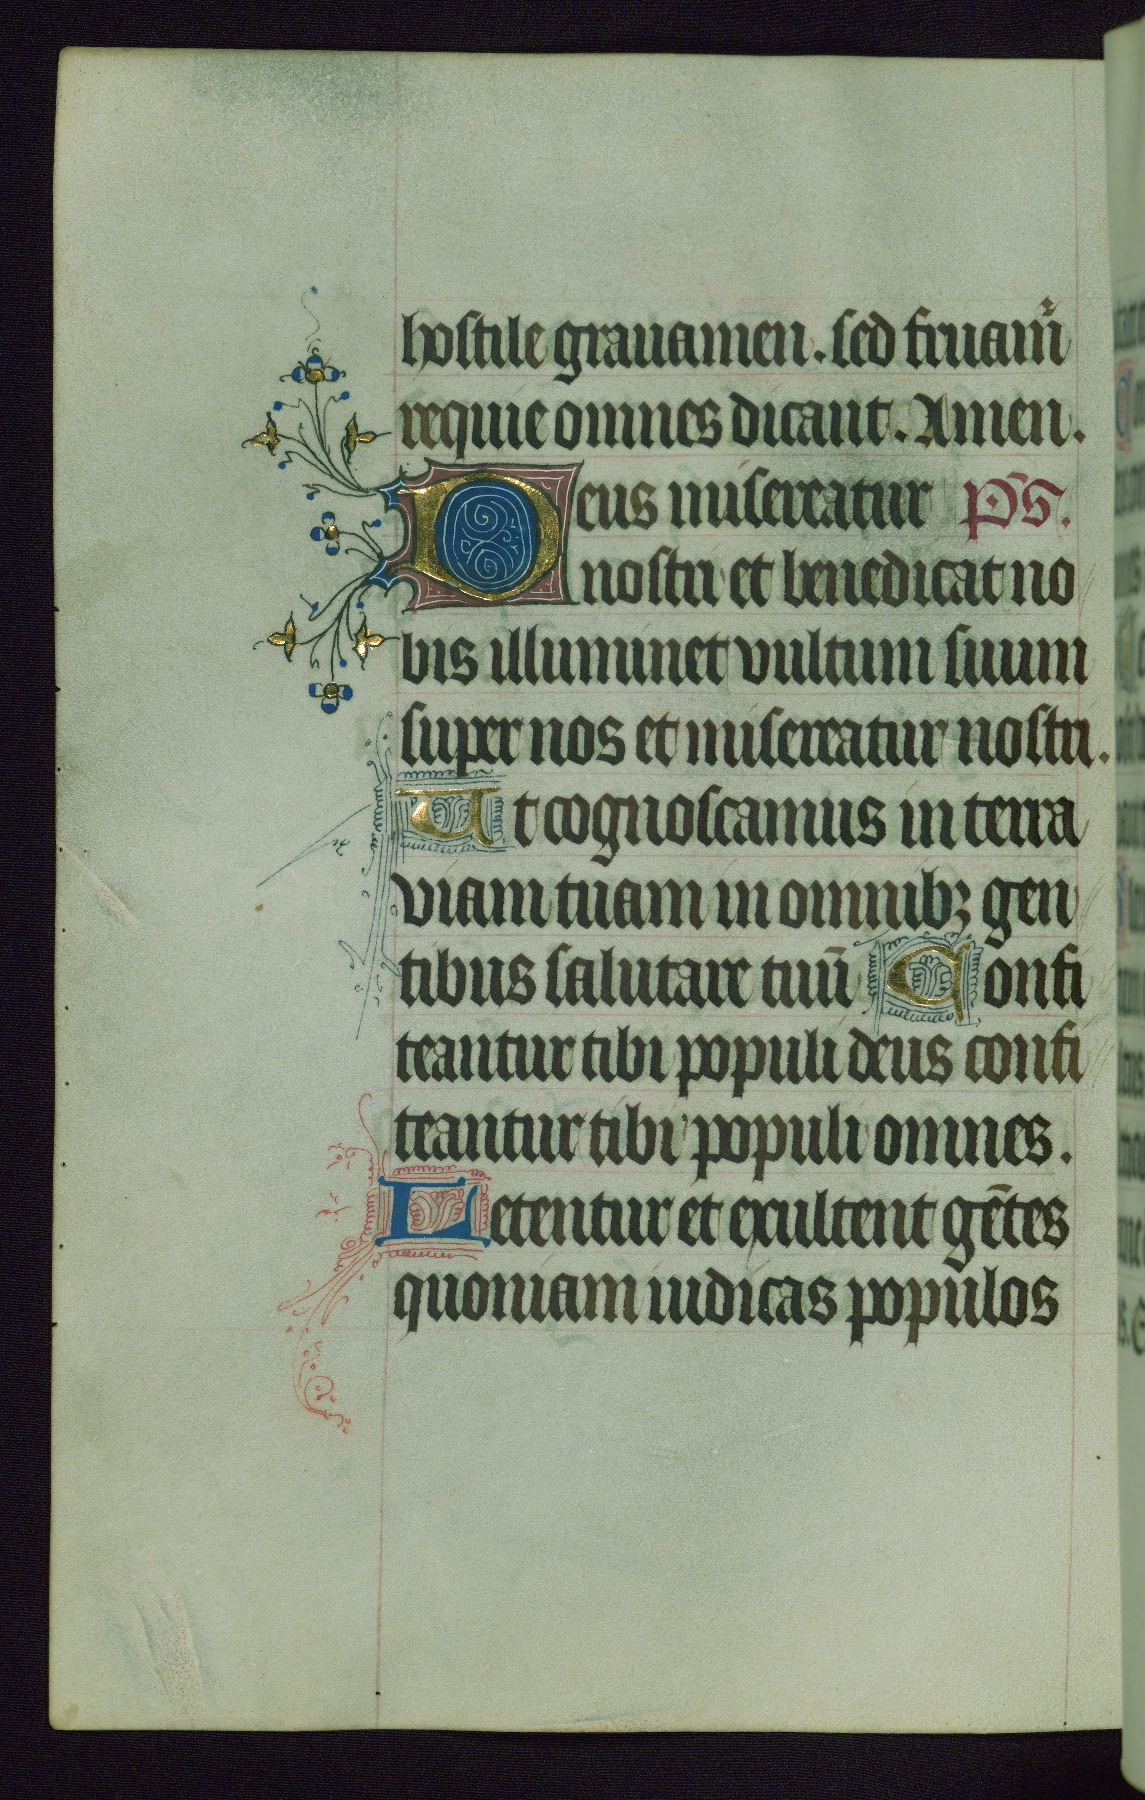 hostile grauamen. sed fruam᷑
requie omnes dicant. Amen.
Deus misereatur PS.
nostri et benedicat no
bis illuminet vultum suum
super nos et misereatur nostri.
Ut cognoscamus in terra
viam tuam in omnibꝫ gen
tibus salutare tuū Confi
teantur tibi populi deus confi
teantur tibi populi omnes.
Letentur et exultent gētes
quoniam iudicas populos